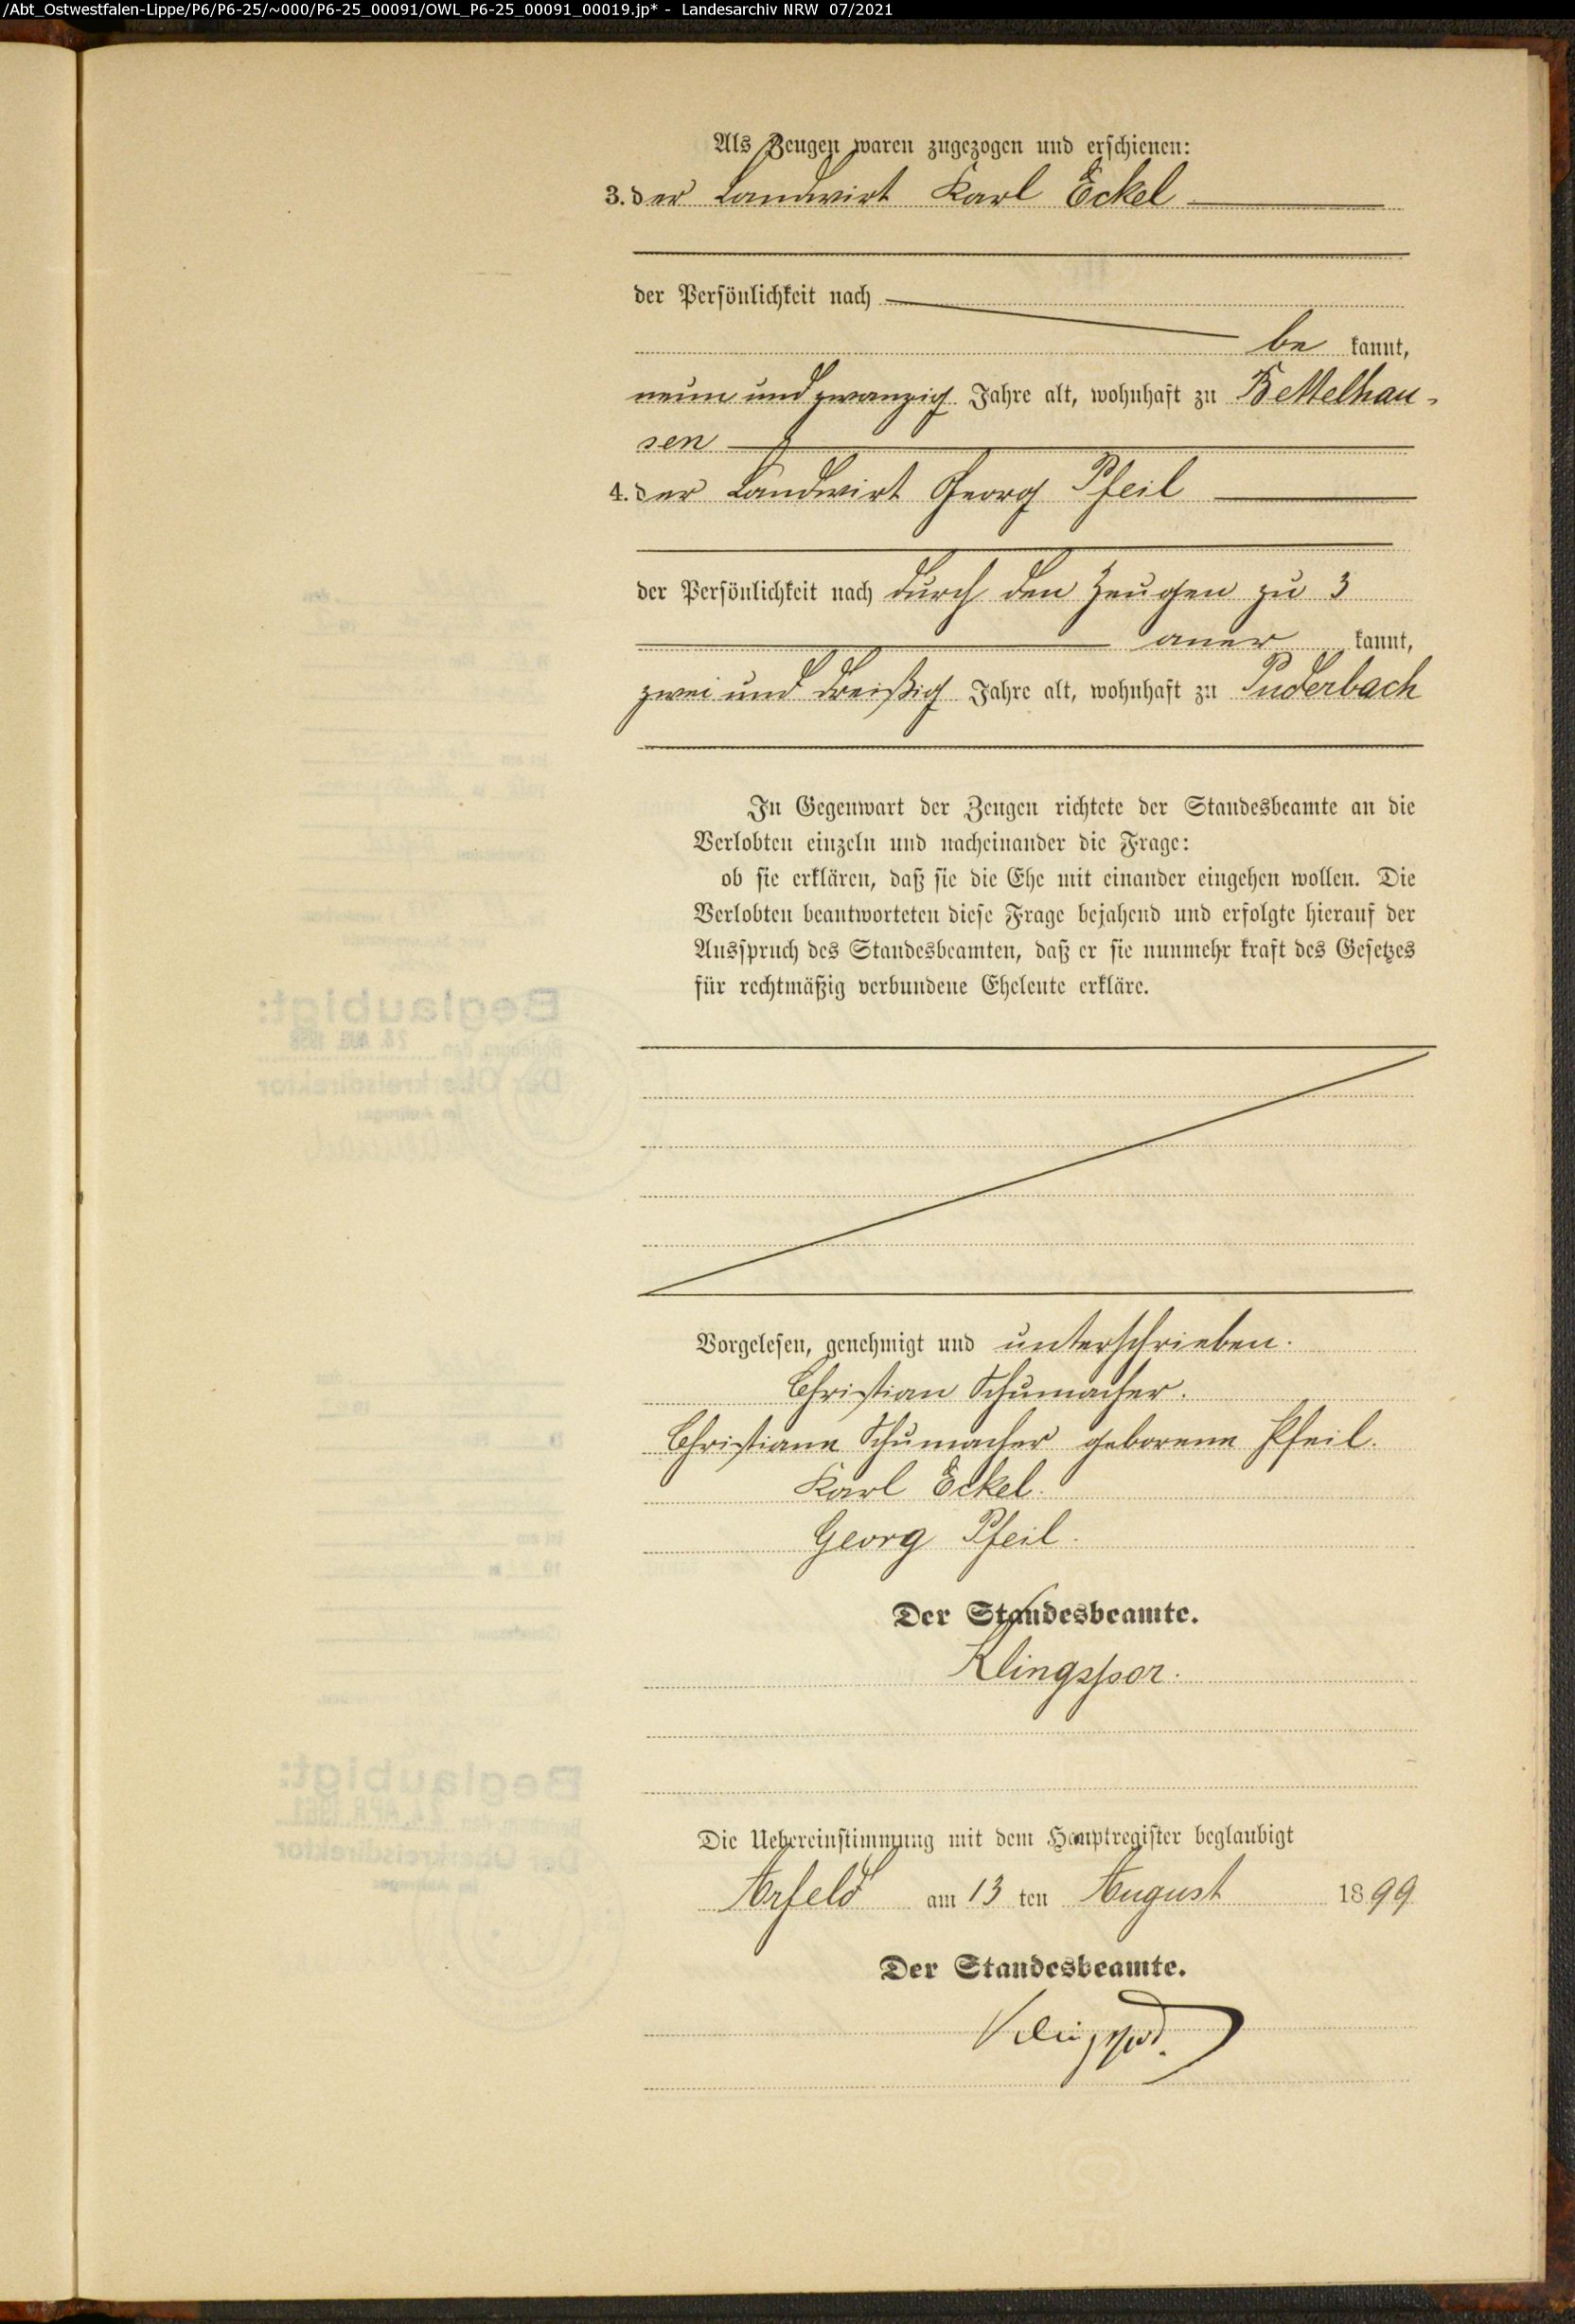 /Abt_Ostwestfalen-Lippe/P6/P6-25/~000/P6-25_00091/OWL_P6-25_00091_00019.jp* - Landesarchiv NRW 07/2021
Als Zeugen waren zugezogen und erschienen:
3. der Landwirt Karl Eckel
der Persönlichkeit nach
be kannt,
neun und zwanzig Jahre alt, wohnhaft zu Bettelhau-
sen
4. der Landwirt Georg Pfeil
der Persönlichkeit nach durch den Zeugen zu 3
aner kannt,
zwei und dreißig Jahre alt, wohnhaft zu Puderbach
In Gegenwart der Zeugen richtete der Standesbeamte an die
Verlobten einzeln und nacheinander die Frage:
ob sie erklären, daß sie die Ehe mit einander eingehen wollen. Die
Verlobten beantworteten diese Frage bejahend und erfolgte hierauf der
Ausspruch des Standesbeamten, daß er sie nunmehr kraft des Gesetzes
für rechtmäßig verbundene Eheleute erkläre.
Vorgelesen, genehmigt und unterschrieben.
Christian Schumacher.
Christiane Schumacher geborene Pfeil.
Karl Eckel.
Georg Pfeil.
Der Standesbeamte.
Klingspor.
Die Uebereinstimmung mit dem Hauptregister beglaubigt
Arfeld am 13 ten August 1899
Der Standesbeamte.
Klingspor.
Beglaubigt:
Der Oberkreisdirektor
Beglaubigt:
24. APR. 1961
Der Oberkreisdirektor